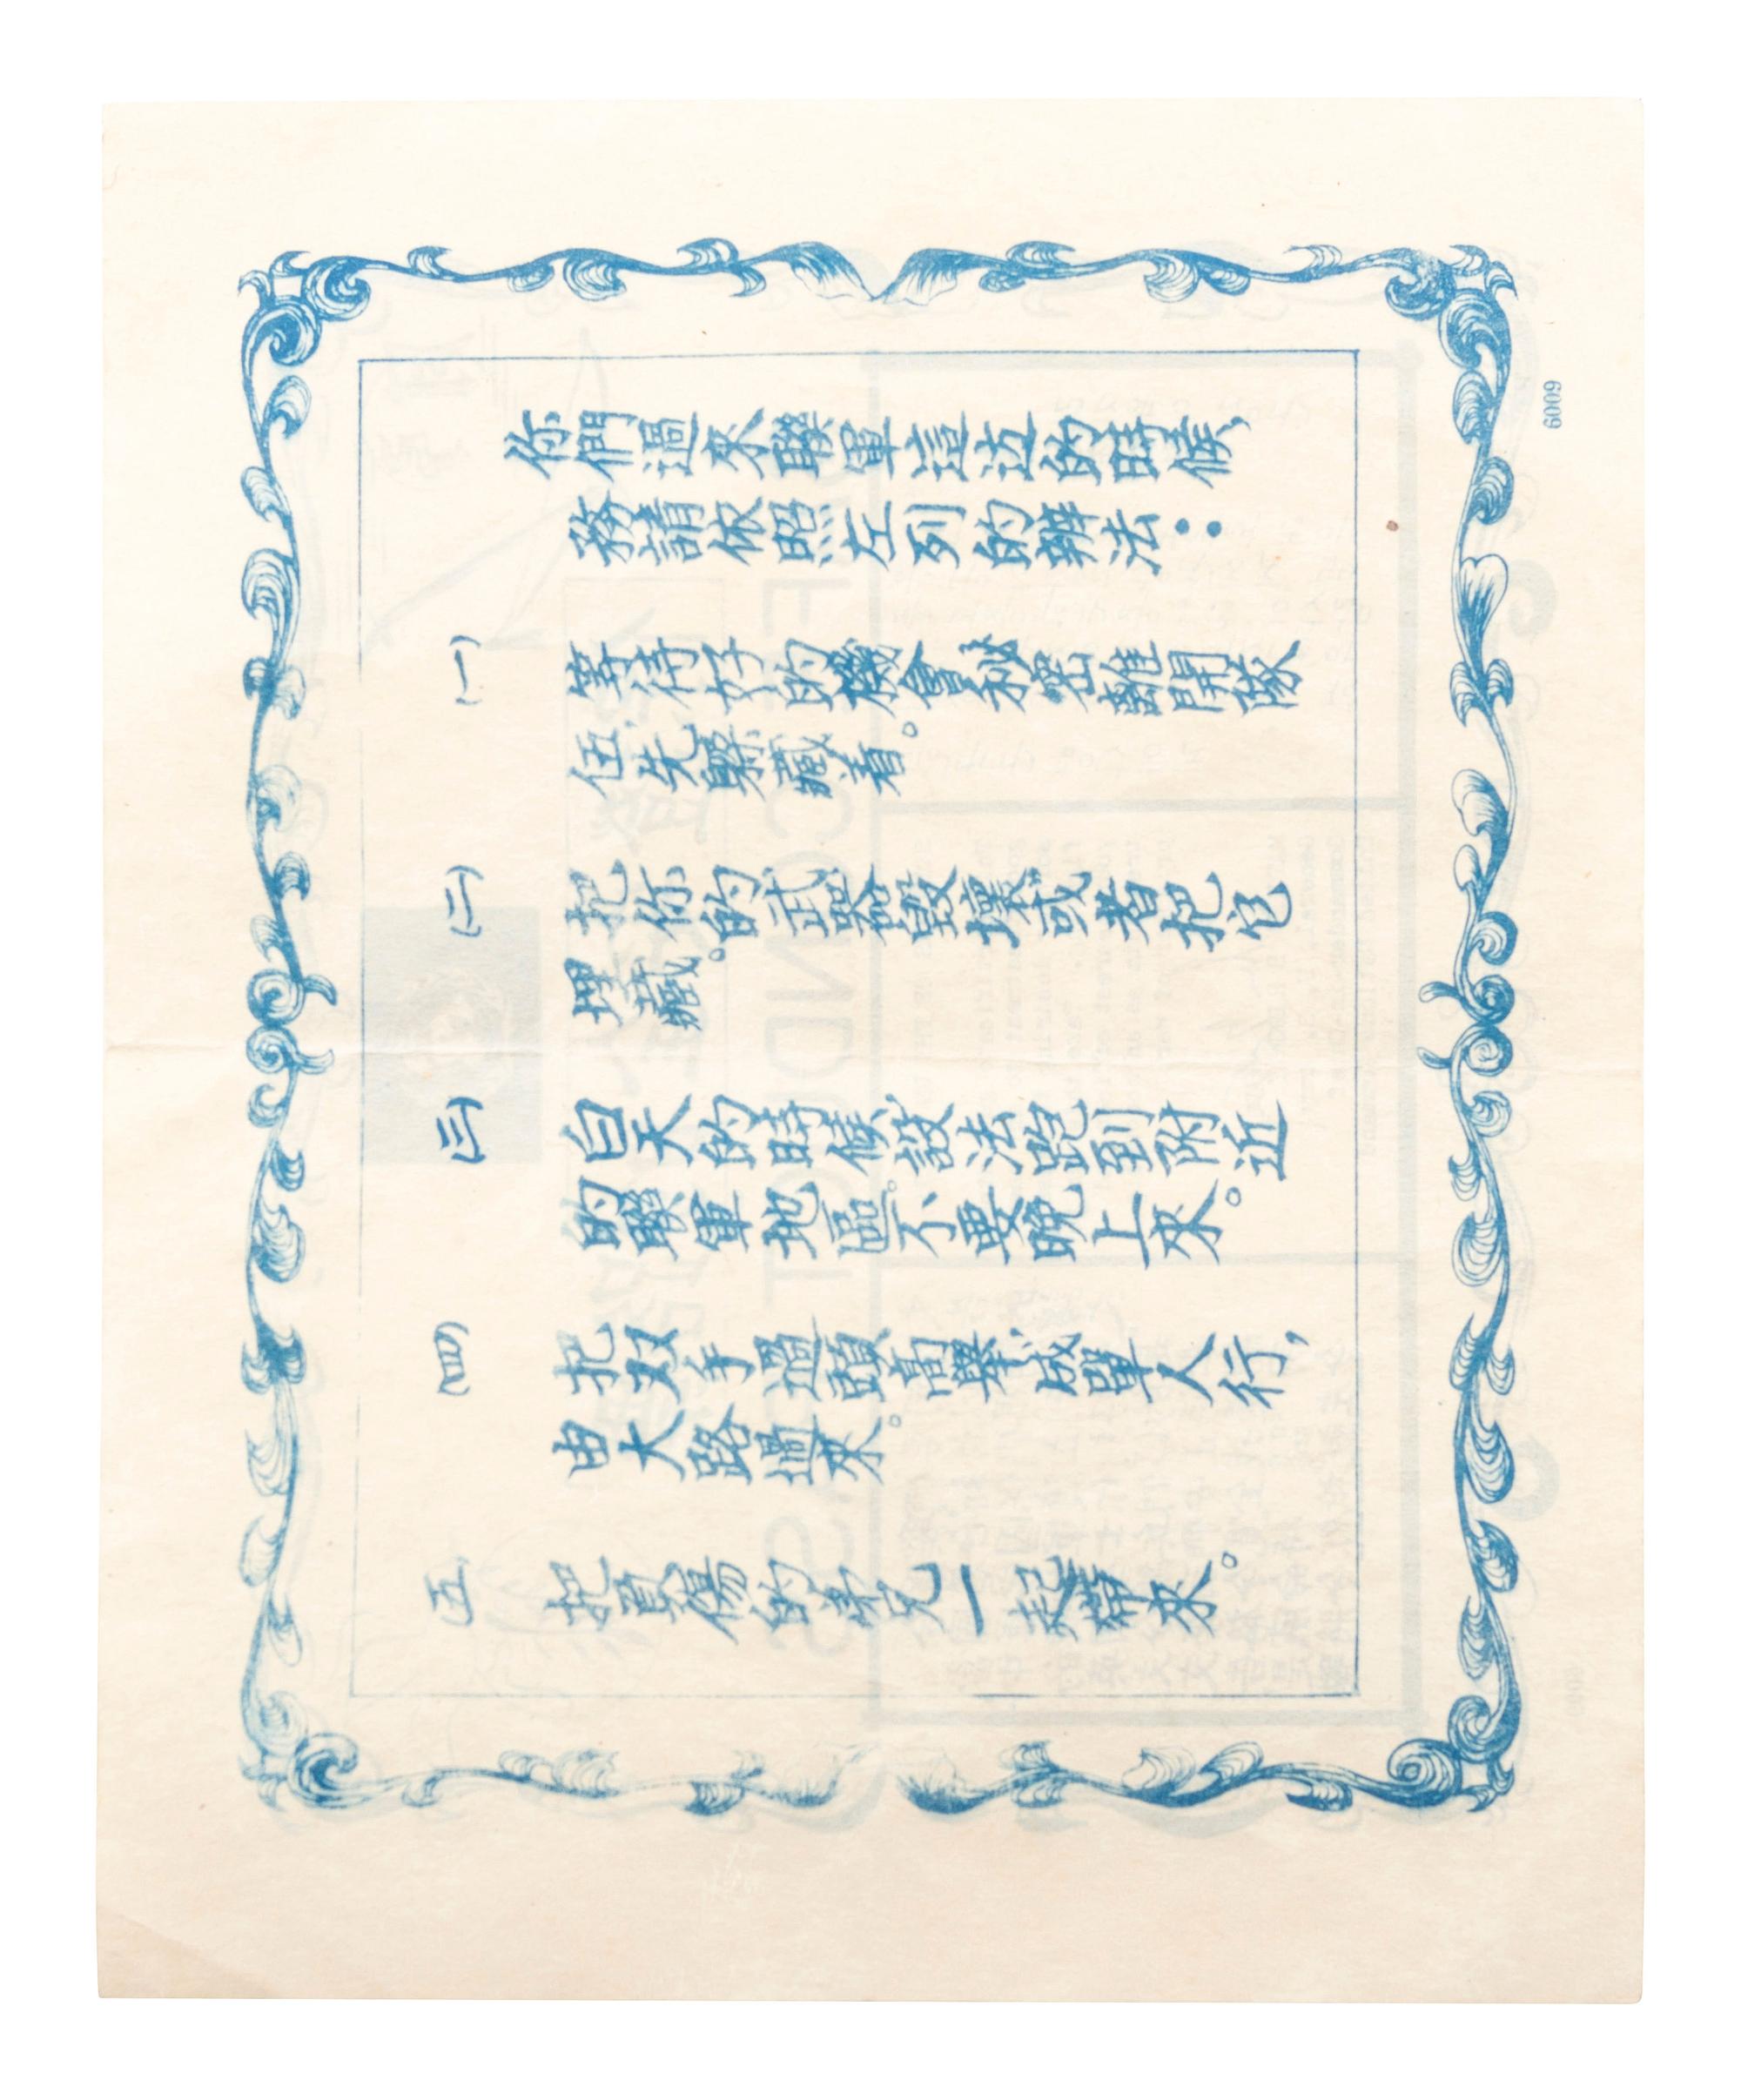 你們過來聯軍這边的時候，
務請依照左列的辦法：
(一) 等待好的機會秘密離開隊
伍先躲藏着。
(二) 把你的武器毀壞或者把它
埋藏。
(三) 白天的時候設法跑到附近
的聯軍地區。不要晚上來。
(四) 把双手過頭高舉成單人行，
由大路過來。
五 把負傷的弟兄一起帶來。
6009